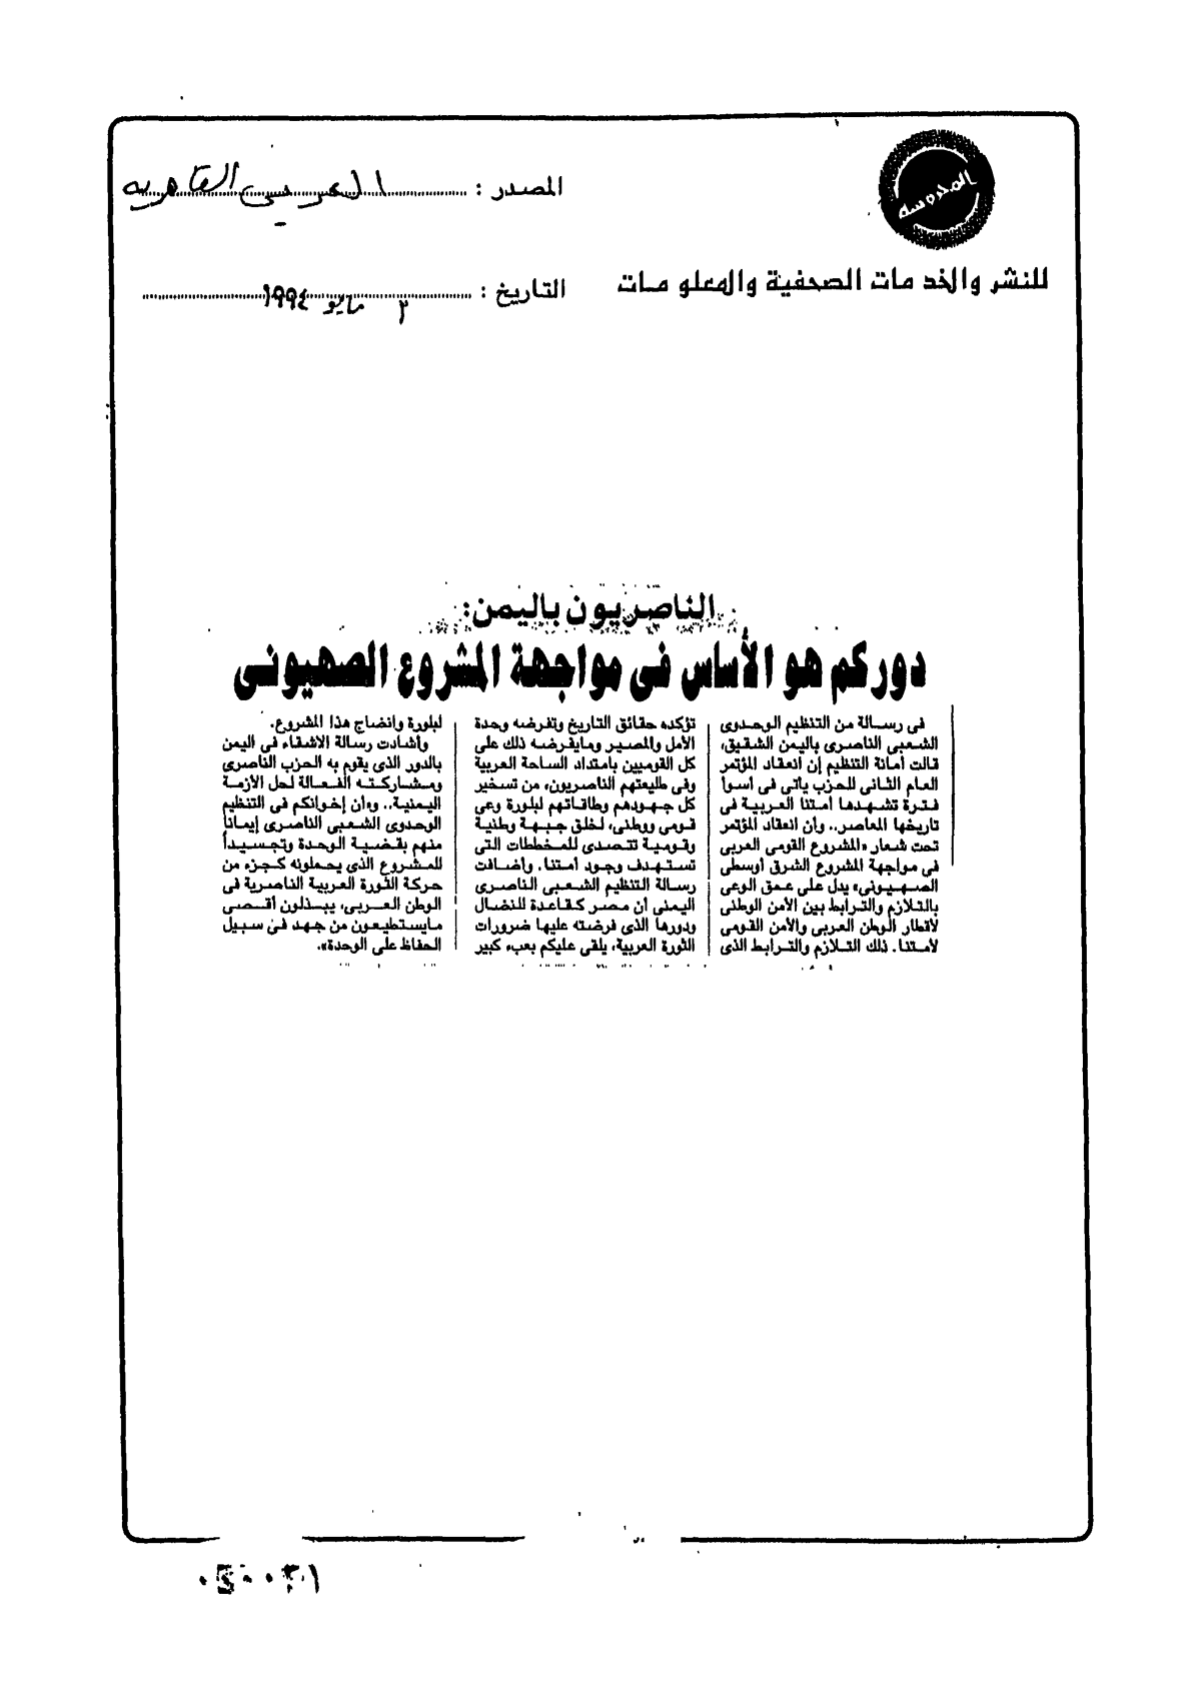 المحروسة
المصدر : العربى القاهرية
للنشر والخدمات الصحفية والمعلومات
التاريخ : ٢ مايو ١٩٩٤
الناصريون باليمن:
دوركم هو الأساس فى مواجهة المشروع الصهيونى
فى رسالة من التنظيم الوحدوى
الشعبى الناصرى باليمن الشقيق،
قالت أمانة التنظيم إن انعقاد المؤتمر
العام الثانى للحزب يأتى فى أسوأ
فترة تشهدها أمتنا العربية فى
تاريخها المعاصر.. وأن انعقاد المؤتمر
تحت شعار «المشروع القومى العربى
فى مواجهة المشروع الشرق أوسطى
الصهيونى» يدل على عمق الوعى
بالتلازم والترابط بين الأمن الوطنى
لأقطار الوطن العربى والأمن القومى
لأمتنا. ذلك التلازم والترابط الذى
تؤكده حقائق التاريخ وتفرضه وحدة
الأمل والمصير ومايفرضه ذلك على
كل القوميين بامتداد الساحة العربية
وفى طليعتهم الناصريون، من تسخير
كل جهودهم وطاقاتهم لبلورة وعى
قومى ووطنى، لخلق جبهة وطنية
وقومية تتصدى للمخططات التى
تستهدف وجود أمتنا. وأضافت
رسالة التنظيم الشعبى الناصرى
اليمنى أن مصر كقاعدة للنضال
ودورها الذى فرضته عليها ضرورات
الثورة العربية، يلقى عليكم بعبء كبير
لبلورة وانضاج هذا المشروع.
وأشادت رسالة الاشقاء فى اليمن
بالدور الذى يقوم به الحزب الناصرى
ومشاركته الفعالة لحل الأزمة
اليمنية.. «وأن إخوانكم فى التنظيم
الوحدوى الشعبى الناصرى إيماناً
منهم بقضية الوحدة وتجسيداً
للمشروع الذى يحملونه كجزء من
حركة الثورة العربية الناصرية فى
الوطن العربى، يبذلون أقصى
مايستطيعون من جهد فى سبيل
الحفاظ على الوحدة».